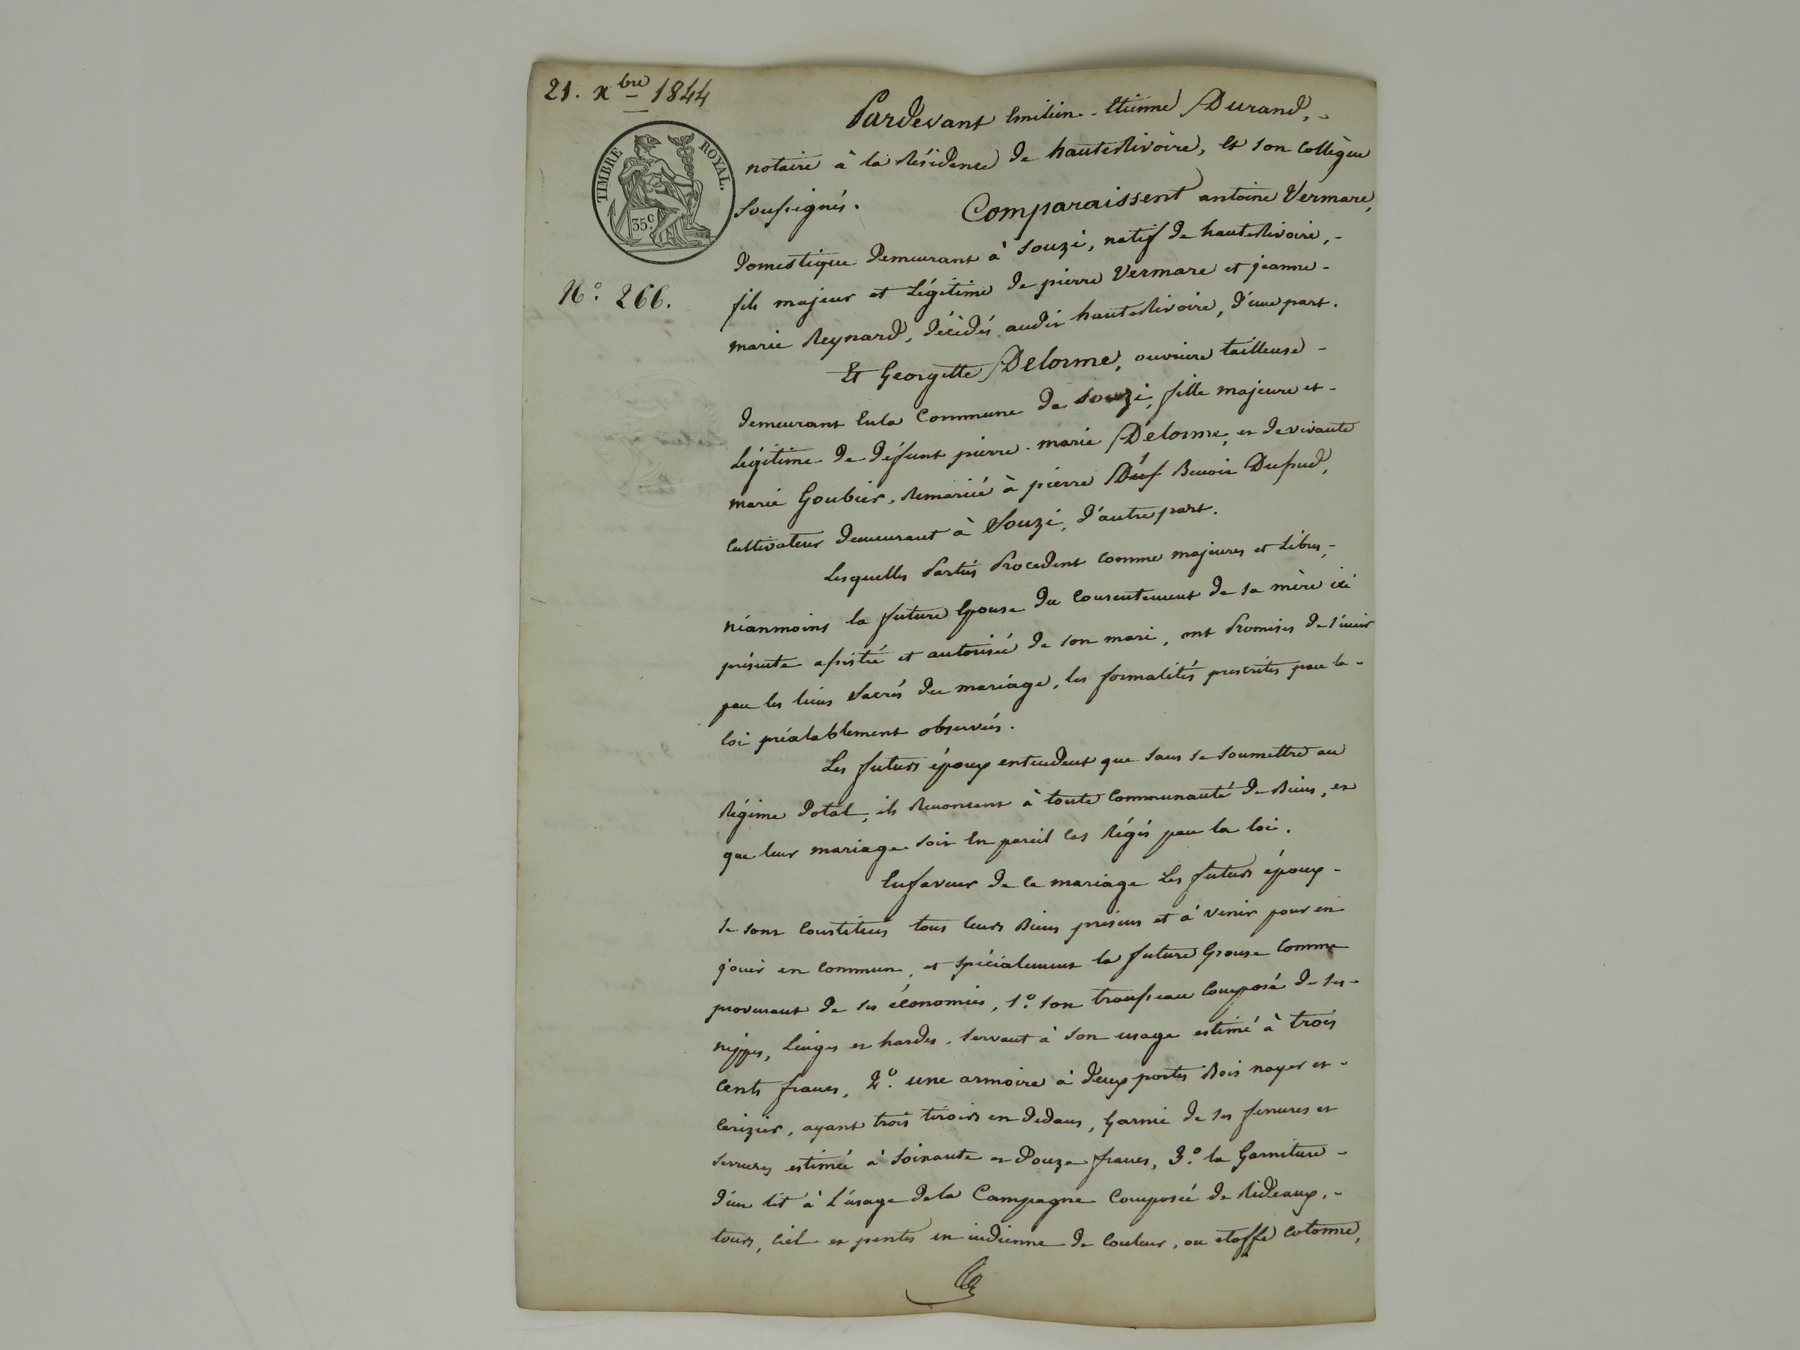 21. xbre 1844
TIMBRE ROYAL.
35c.
No. 266.
Pardevant Emilien-Etienne Durand,
notaire à la Résidence de hauteRivoire, et son Collègue
Soussignés. Comparaissent antoine Vermare,
domestique demeurant à Souzi, natif de hauteRivoire,
fils majeur et Légitime de pierre Vermare et jeanne-
marie Reynard, décédés audit hauteRivoire, d'une part.
Et Georgette Delorme, ouvrière tailleuse
demeurant En la Commune de Souzi, fille majeure et
Légitime de défunt pierre-marie Delorme, et de vivante
marie Goubier, Remariée à pierre Benoit
Cultivateur demeurant à Souzi, d'autre part.
Lesquelles Parties Procedent comme majeures et Libres,
néanmoins la future Epouse du Consentement de sa mère ici
présente assistée et autorisée de son mari, ont Promises de s'unir
par les liens Sacrés du mariage, les formalités prescrites par la
loi préalablement observées.
Les futurs époux entendent que sans se soumettre au
Régime Dotal, ils Renoncent à toute Communauté de Biens, et
que leur mariage soit En pareil Cas Régis par la loi.
En faveur de Ce mariage Les futurs époux
se sont Constitués tous leurs Biens présens et à venir pour en
jouir en Commun, et spécialement la future Epouse Comme
provenant de ses économies, 1o. son trousseau Composé de ses
nippes, Linges et hardes, servant à son usage estimé à trois
Cents francs, 2o. une armoire à deux portes Bois noyer et
Cerizier, ayant trois tiroirs en dedans, Garnie de ses ferrures et
serrures estimée à Soixante et Douze francs, 3o. la Garniture
d'un lit à L'usage de la Campagne Composée de Rideaux,
tours, Ciel et pentes en indienne de Couleur, ou etoffe Cotonne,